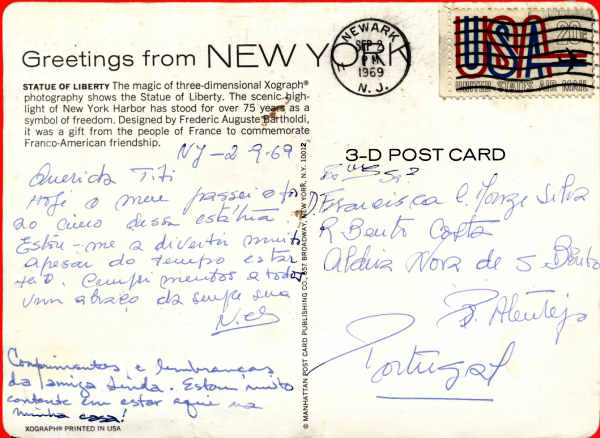 Greetings from NEW YORK
STATUE OF LIBERTY The magic of three-dimensional Xograph®
photography shows the Statue of Liberty. The scenic high-
light of New York Harbor has stood for over 75 years as a
symbol of freedom. Designed by Frederic Auguste Bartholdi,
it was a gift from the people of France to commemorate
Franco-American friendship.
NY-2 9-69
Querida Titi
Hoje o meu passeio foi
ao cimo dessa estátua.
Estou-me a divertir muito
apesar do tempo estar
feio. Cumprimentos a todos
Um abraço da sempre sua
Comprimentos e lembranças
da amiga Linda. Estou muito
contente em estar aqui na
minha casa!
XOGRAPH® PRINTED IN USA
© MANHATTAN POST CARD PUBLISHING CO., BROADWAY, NEW YORK, N.Y. 10012
NEWARK
SEP 2
PM
1969
N. J.
USA 20c
UNITED STATES AIR MAIL
3-D POST CARD
D. Francisca C. Silva
R Bento Costa
Aldeia Nova de S. Bento
B. Alentejo
Portugal